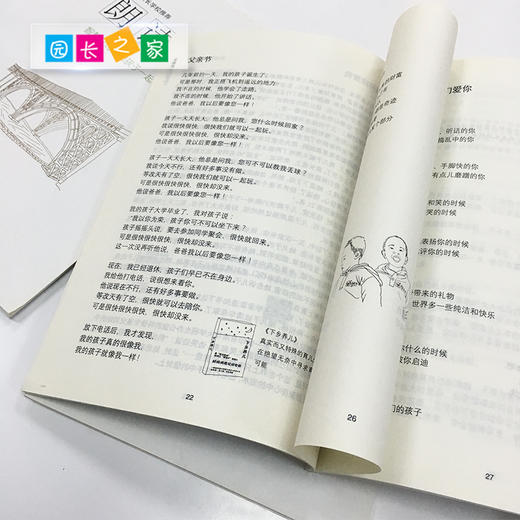 长学校推荐
朗
园长之家
父亲节
几年前的一天，我的孩子诞生了，
可是那时，我正搭飞机到遥远的地方，
我不在的时候，他学会了走路。
我不在的时候，他开始了讲话。
他说爸爸，我以后要像您一样！
孩子一天天长大，他总是问我，您什么时候回家？
我说很快很快，很快我们就可以一起玩。
可是很快很快很快，很快却没来。
他说爸爸，我以后要像您一样！
孩子一天天长大，他总是问我，您可不可以教我丢球？
我说今天不行，还有好多事没有做。
等改天有了空，很快我们就可以一起玩。
可是很快很快很快，很快却没来。
他说爸爸，我以后要像您一样！
我的孩子大学毕业了，我对孩子说：
「我以你为荣，孩子你可不可以坐下来？
孩子摇摇头说，要去参加同学聚会，很快就回来。
可是很快很快很快，很快却没来。
这一次没再听他说，爸爸我以后要像您一样！
现在，我已经退休，孩子们早已不在身边。
我给他打电话，说很想来看你。
他说现在不行，还有好多事要做。
等改天有了空，很快就可以去陪你。
可是很快很快很快，很快却没来。
放下电话后，我才发现，
我的孩子真的很像我，
我的孩子就像我一样！
《下乡养儿》
真实而又特殊的育儿
在绝望无奈中寻求
可能
下乡养儿
22
的财富
奇迹
部分
26
们爱你
、听话的你
捣乱中的你
、手脚快的你
有点儿磨蹭的你
和笑的时候
哭的时候
表扬你的时候
评你的时候
带来的礼物
世界多一些纯洁和快乐
你什么的时候
被你启迪
们的孩子
27